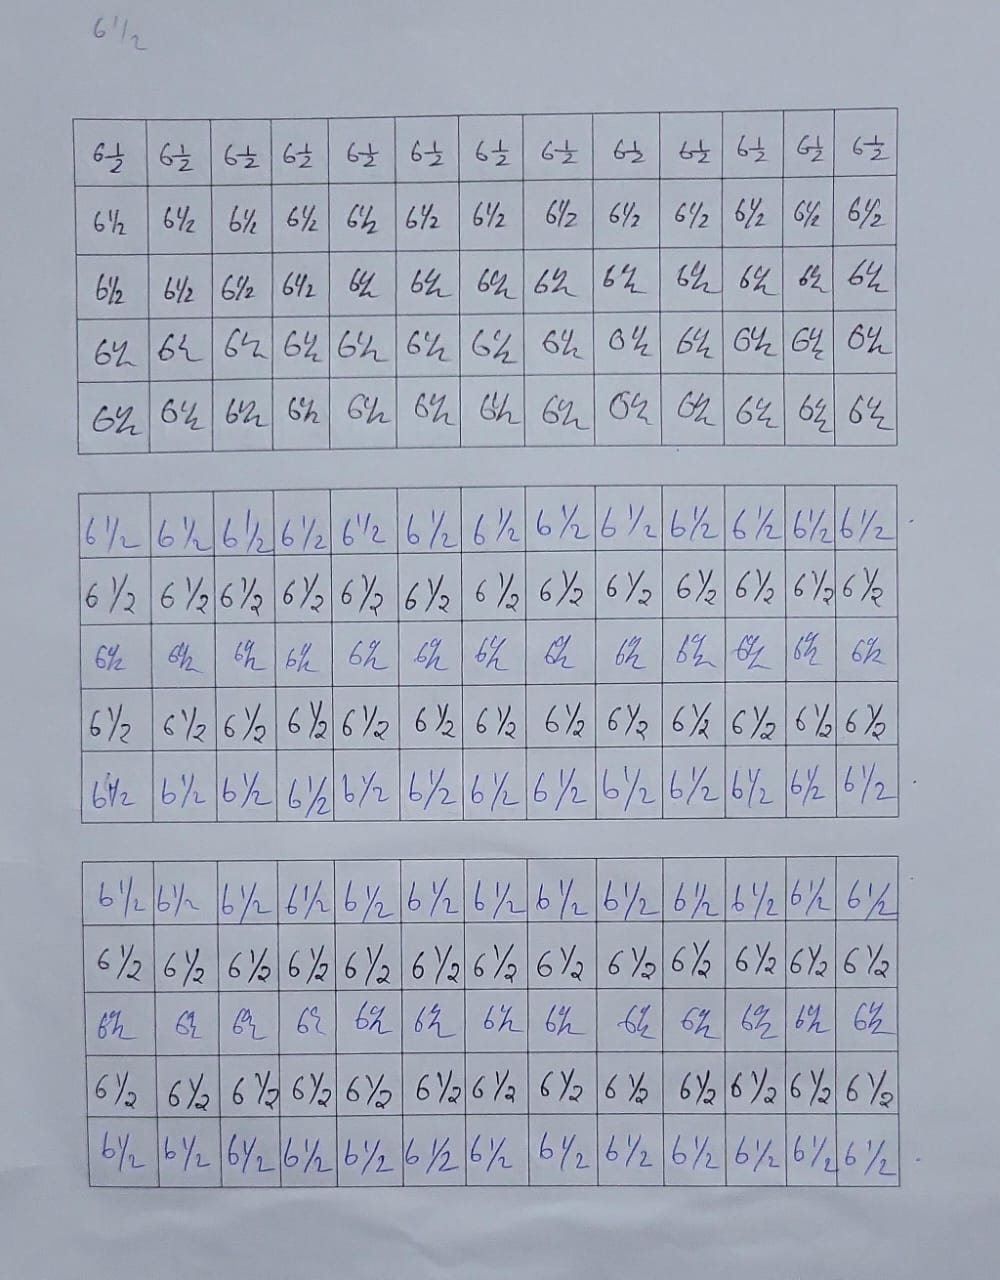 6 1/2
6½ 6½ 6½ 6½ 6½ 6½ 6½ 6½ 6½ 6½ 6½ 6½ 6½
6 1/2 6 1/2 6 1/2 6 1/2 6 1/2 6 1/2 6 1/2 6 1/2 6 1/2 6 1/2 6 1/2 6 1/2 6 1/2
6 1/2 6 1/2 6 1/2 6 1/2 6 1/2 6 1/2 6 1/2 6 1/2 6 1/2 6 1/2 6 1/2 6 1/2 6 1/2
6 1/2 6 1/2 6 1/2 6 1/2 6 1/2 6 1/2 6 1/2 6 1/2 6 1/2 6 1/2 6 1/2 6 1/2 6 1/2
6 1/2 6 1/2 6 1/2 6 1/2 6 1/2 6 1/2 6 1/2 6 1/2 6 1/2 6 1/2 6 1/2 6 1/2 6 1/2
6 1/2 6 1/2 6 1/2 6 1/2 6 1/2 6 1/2 6 1/2 6 1/2 6 1/2 6 1/2 6 1/2 6 1/2 6 1/2
6 1/2 6 1/2 6 1/2 6 1/2 6 1/2 6 1/2 6 1/2 6 1/2 6 1/2 6 1/2 6 1/2 6 1/2 6 1/2
6 1/2 6 1/2 6 1/2 6 1/2 6 1/2 6 1/2 6 1/2 6 1/2 6 1/2 6 1/2 6 1/2 6 1/2 6 1/2
6 1/2 6 1/2 6 1/2 6 1/2 6 1/2 6 1/2 6 1/2 6 1/2 6 1/2 6 1/2 6 1/2 6 1/2 6 1/2
6 1/2 6 1/2 6 1/2 6 1/2 6 1/2 6 1/2 6 1/2 6 1/2 6 1/2 6 1/2 6 1/2 6 1/2 6 1/2
6 1/2 6 1/2 6 1/2 6 1/2 6 1/2 6 1/2 6 1/2 6 1/2 6 1/2 6 1/2 6 1/2 6 1/2 6 1/2
6 1/2 6 1/2 6 1/2 6 1/2 6 1/2 6 1/2 6 1/2 6 1/2 6 1/2 6 1/2 6 1/2 6 1/2 6 1/2
6 1/2 6 1/2 6 1/2 6 1/2 6 1/2 6 1/2 6 1/2 6 1/2 6 1/2 6 1/2 6 1/2 6 1/2 6 1/2
6 1/2 6 1/2 6 1/2 6 1/2 6 1/2 6 1/2 6 1/2 6 1/2 6 1/2 6 1/2 6 1/2 6 1/2 6 1/2
6 1/2 6 1/2 6 1/2 6 1/2 6 1/2 6 1/2 6 1/2 6 1/2 6 1/2 6 1/2 6 1/2 6 1/2 6 1/2